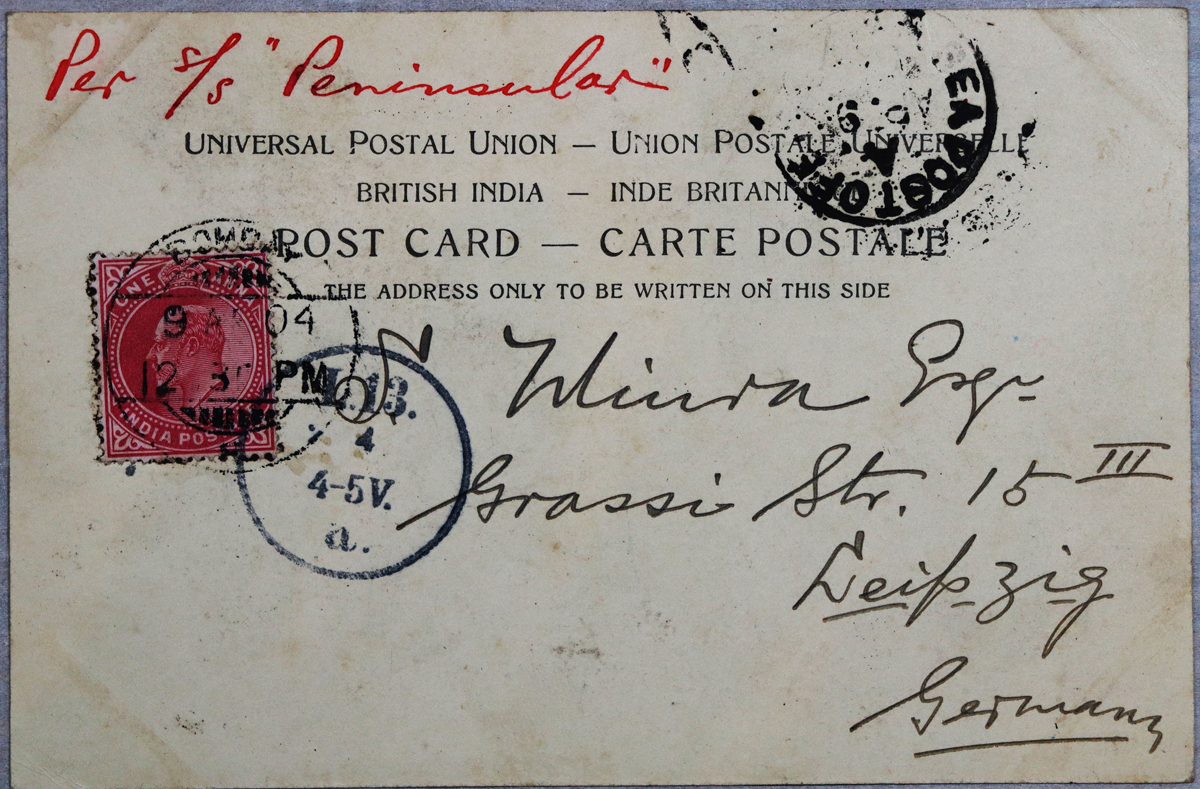 Per S/S "Peninsular"
UNIVERSAL POSTAL UNION — UNION POSTALE UNIVERSELLE
BRITISH INDIA — INDE BRITANNIQUE
POST CARD — CARTE POSTALE
THE ADDRESS ONLY TO BE WRITTEN ON THIS SIDE
SEA POST OFFICE
A
ONE ANNA
INDIA POSTAGE
BOMBAY
9 AP 04
12 30 PM
L.13.
4
4-5V.
a.
Esqr
Grassi Str. 15 III
Leipzig
Germany